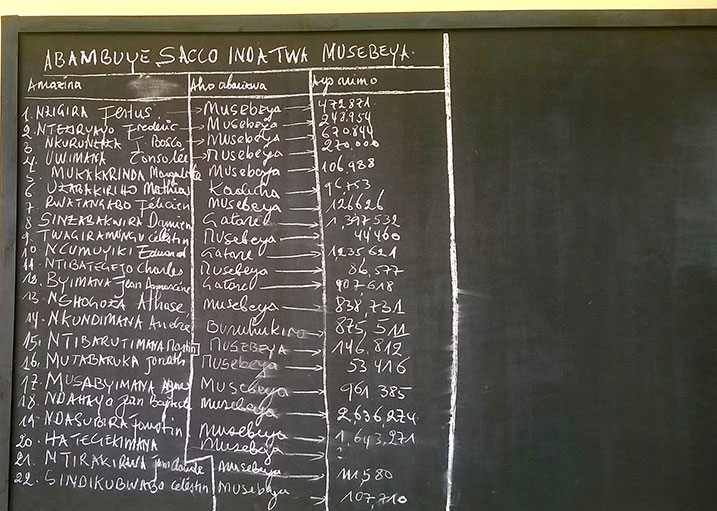 ABAMBUYE SACCO INDATWA MUSEBEYA.
Amazina Aho abarizwa Ayo arimo
1. NZIGIRA Festus → Musebeya → 472871
2. NTEZIRYAYO Frederic → Musebeya → 248.954
3 NKURUNZIZA J. Bosco → Musebeya → 670844
4. UWIMANA Consolée → Musebeya → 270.000
5. MUKAKARINDA Musebeya → 106,988
6 UZABAKIRIHO Mathias Kaduha → 96,753
7 RWATANGABO Félicien Musebeya → 126626
8 SINZABAKWIRA Damien Gatare → 1,397532
9. TWAGIRAMUNGU Célestin Musebeya → 44460
10. NCUMUYIKI Eduard Gatare → 1235621
11. NTIBATEGEJO Charles Musebeya → 86,577
12. BYIMANA Jean Damascène Gatare → 907618
13. NSHOGOZA Athase Musebeya → 838,731
14. NKUNDIMANA André Buruhukiro → 875,511
15. NTIBARUTIMANA Martin MUSEBEYA → 146,812
16. MUTABARUKA Jonath Musebeya → 53416
17. MUSABYIMANA Agnes Musebeya → 961385
18. NDAHAYO Jean Baptiste Musebeya → 2,636,274
19. NDASUBIRA Faustin Musebeya → 1,643,271
20. HATEGEKIMANA Musebeya → ?
21. NTIRAKIRWA Jean Claude Musebeya → 111,580
22. SINDIKUBWABO Célestin Musebeya → 107,710